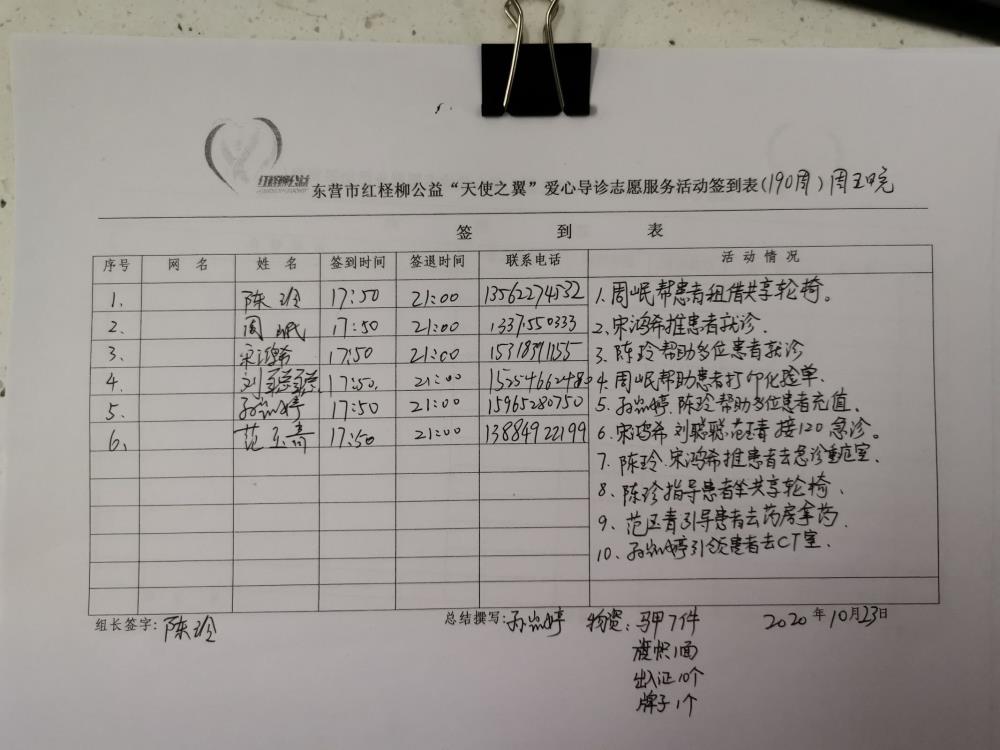 红柽柳公益
东营市红柽柳公益“天使之翼”爱心导诊志愿服务活动签到表(190周)周五晚
签 到 表
序号 网名 姓名 签到时间 签退时间 联系电话 活动情况
1. 陈玲 17:50 21:00 13562274532
2. 周岷 17:50 21:00 13371550333
3. 宋鸿希 17:50 21:00 15318391155
4. 刘聪聪 17:50. 21:00 15254662480
5. 孙岚婷 17:50 21:00 15965280750
6. 范玉青 17:50 21:00 13884922199
1.周岷帮患者租借共享轮椅。
2.宋鸿希推患者就诊.
3.陈玲帮助多位患者就诊
4.周岷帮助患者打印化验单.
5.孙岚婷.陈玲帮助多位患者充值.
6.宋鸿希 刘聪聪 范玉青 接120急诊。
7.陈玲.宋鸿希推患者去急诊重症室.
8.陈玲指导患者坐共享轮椅、
9.范玉青引导患者去药房拿药.
10.孙岚婷引领患者去CT室.
组长签字:陈玲 总结撰写:孙岚婷 物资:马甲7件 2020年10月23日
旗帜1面
出入证10个
牌子1个